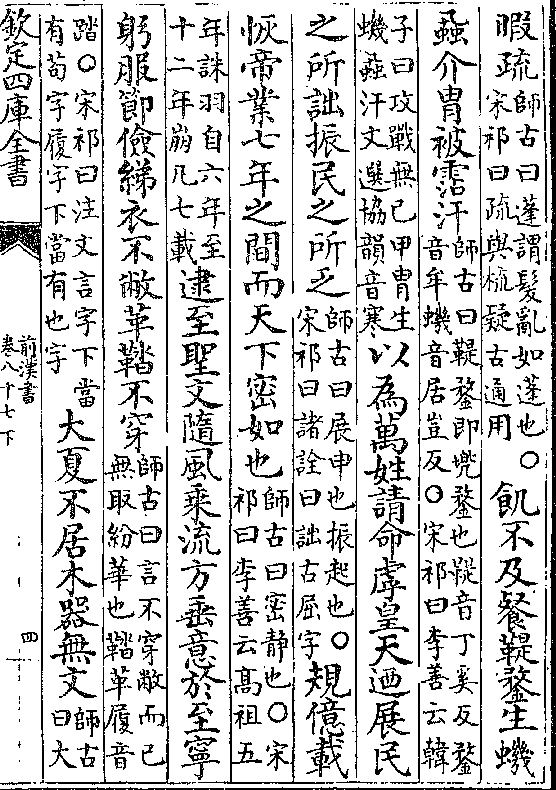 暇疏師古曰蓬謂髮亂如蓬也○宋祁曰疏與梳疑古通用飢不及餐鞮鍪生蟣
蝨介胄被霑汗師古曰鞮鍪即兜鍪也鞮音丁奚反鍪音牟蟣音居豈反○宋祁曰李善云韓
子曰攻戰無已甲胄生蟣蝨汗文選協韻音寒以為萬姓請命虖皇天迺展民
之所詘振民之所乏師古曰展申也振起也○宋祁曰諸詮曰詘古屈字規億載
恢帝業七年之間而天下密如也師古曰密静也○宋祁曰李善云髙祖五
年誅羽自六年至十二年崩凡七載逮至聖文隨風乘流方垂意於至寧
躬服節儉綈衣不敝革鞜不穿師古曰言不穿敝而已無取紛華也鞜革履音
踏○宋祁曰注文言字下當有苟字履字下當有也字大夏不居木器無文師古曰大
欽定四庫全書
前漢書
卷八十七下
四